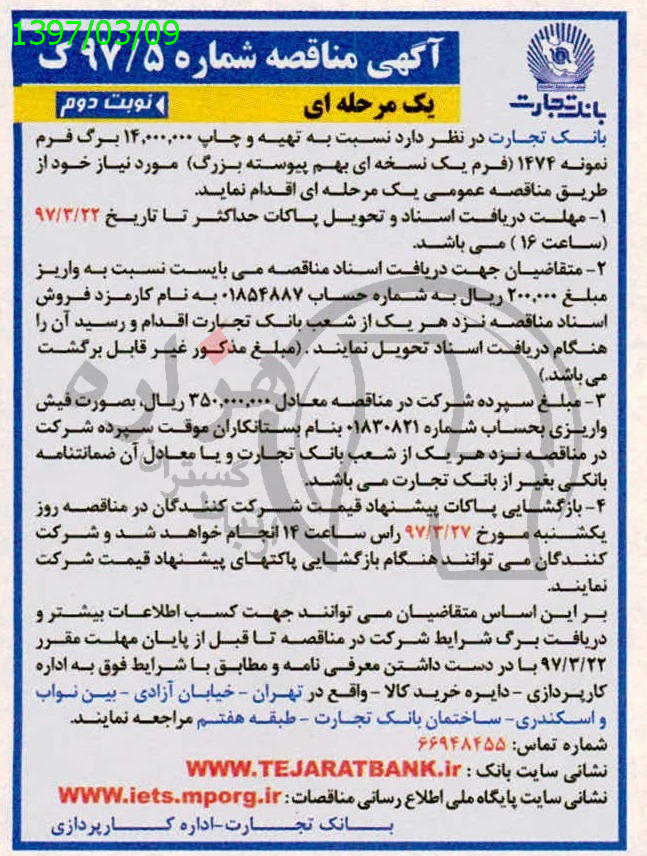 1397/03/09
آگهی مناقصه شماره ۹۷/۵ ک
بانک تجارت
یک مرحله ای
نوبت دوم
بانک تجارت در نظر دارد نسبت به تهیه و چاپ ۱۴,۰۰۰,۰۰۰ برگ فرم
نمونه ۱۴۷۴ (فرم یک نسخه ای بهم پیوسته بزرگ) مورد نیاز خود از
طریق مناقصه عمومی یک مرحله ای اقدام نماید.
۱- مهلت دریافت اسناد و تحویل پاکات حداکثر تا تاریخ ۹۷/۳/۲۲
(ساعت ۱۶ ) می باشد.
۲- متقاضیان جهت دریافت اسناد مناقصه می بایست نسبت به واریز
مبلغ ۲۰۰,۰۰۰ ریال به شماره حساب ۰۱۸۵۴۸۸۷ به نام کارمزد فروش
اسناد مناقصه نزد هر یک از شعب بانک تجارت اقدام و رسید آن را
هنگام دریافت اسناد تحویل نمایند . (مبلغ مذکور غیر قابل برگشت
می باشد.)
۳- مبلغ سپرده شرکت در مناقصه معادل ۳۵۰,۰۰۰,۰۰۰ ریال، بصورت فیش
واریزی بحساب شماره ۰۱۸۳۰۸۲۱ بنام بستانکاران موقت سپرده شرکت
در مناقصه نزد هر یک از شعب بانک تجارت و یا معادل آن ضمانتنامه
بانکی بغیر از بانک تجارت می باشد.
۴- بازگشایی پاکات پیشنهاد قیمت شرکت کنندگان در مناقصه روز
یکشنبه مورخ ۹۷/۳/۲۷ راس ساعت ۱۴ انجام خواهد شد و شرکت
کنندگان می توانند هنگام بازگشایی پاکتهای پیشنهاد قیمت شرکت
نمایند.
بر این اساس متقاضیان می توانند جهت کسب اطلاعات بیشتر و
دریافت برگ شرایط شرکت در مناقصه تا قبل از پایان مهلت مقرر
۹۷/۳/۲۲ با در دست داشتن معرفی نامه و مطابق با شرایط فوق به اداره
کارپردازی - دایره خرید کالا - واقع در تهران - خیابان آزادی - بین نواب
و اسکندری- ساختمان بانک تجارت - طبقه هفتم مراجعه نمایند.
شماره تماس: ۶۶۹۴۸۴۵۵
نشانی سایت بانک : WWW.TEJARATBANK.ir
نشانی سایت پایگاه ملی اطلاع رسانی مناقصات: WWW.iets.mporg.ir
بانک تجارت-اداره کارپردازی
هزاره